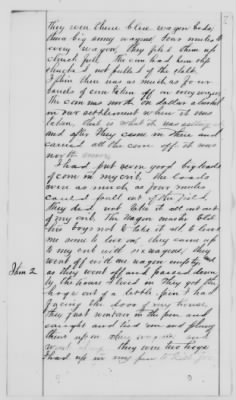 they were these blue wagon beds
these big army wagons four mules to
every wagon, they filed them up
chuck full. The corn had been slip
shucked not pulled off the stalk.
I think there was as much as four
barrels of corn taken off on every wagon
The corn was worth one dollar a bushel
in our settlement where it was
then, that is what it was selling
and after they came in there and
carried all the corn off it was
worth more.
I had put seven good big loads
of corn in my crib, the loads
were as much as four mules
could pull out of the field
they did not take it all out
of my crib. The Wagon master told
the boys not to take it all to leave
me some to live on, they came up
to my crib with six wagons, they
went off with one wagon empty and
Item 2 as they went off and passed down
by the house I lived in they got the
hogs out of a little pen I had
facing the door of my house,
they just went in the pen and
caught and tied them and flung
them up in the wagon and
went along they were two hogs
I had up in my pen to